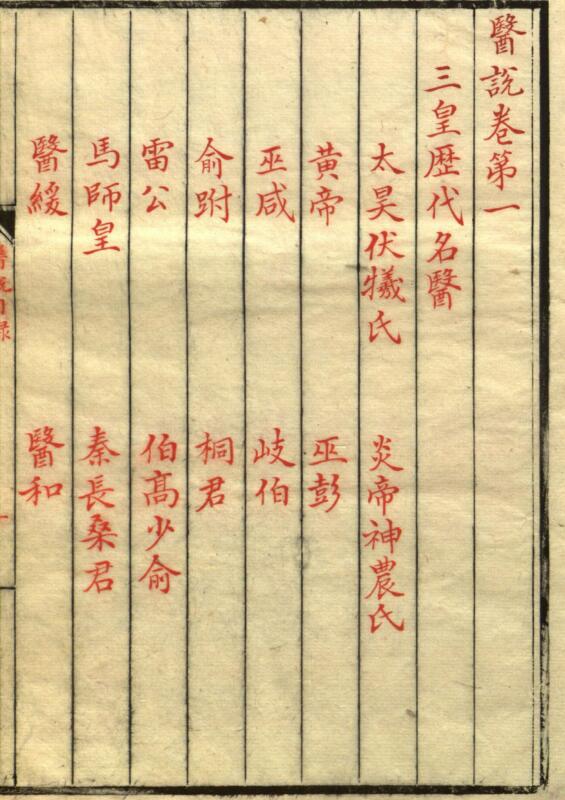 醫說卷第一
三皇歷代名醫
太昊伏犧氏 炎帝神農氏
黃帝 巫彭
巫咸 岐伯
俞跗 桐君
雷公 伯髙少俞
馬師皇 秦長桑君
醫緩 醫和